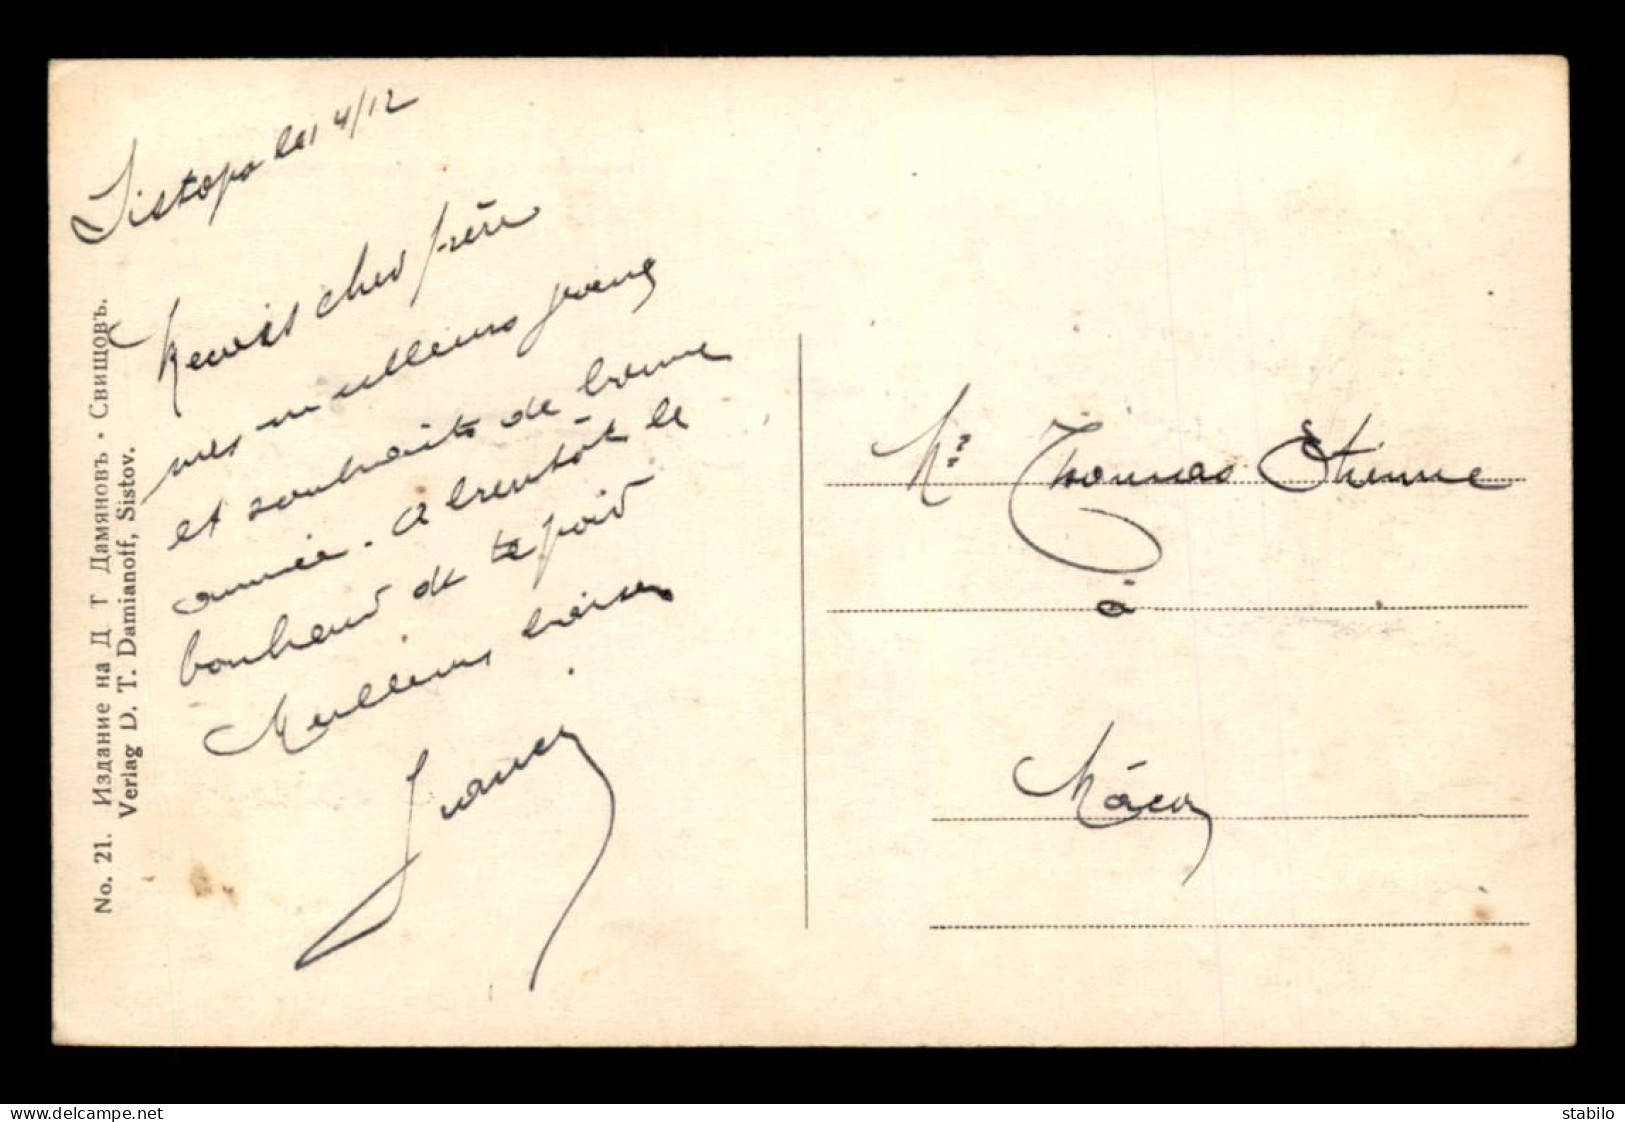 Sistopo le 14/12
Recois cher frère
mes meilleurs
et souhaits de bonne
année. A bientôt le
bonheur de te
Meilleurs baisers
Francis
Mr Thomas Etienne
à
Mâcon
No. 21. Издание на Д Т Дамяновъ · Свищовъ.
Verlag D. T. Damianoff, Sistov.
delcampe.net
stabilo